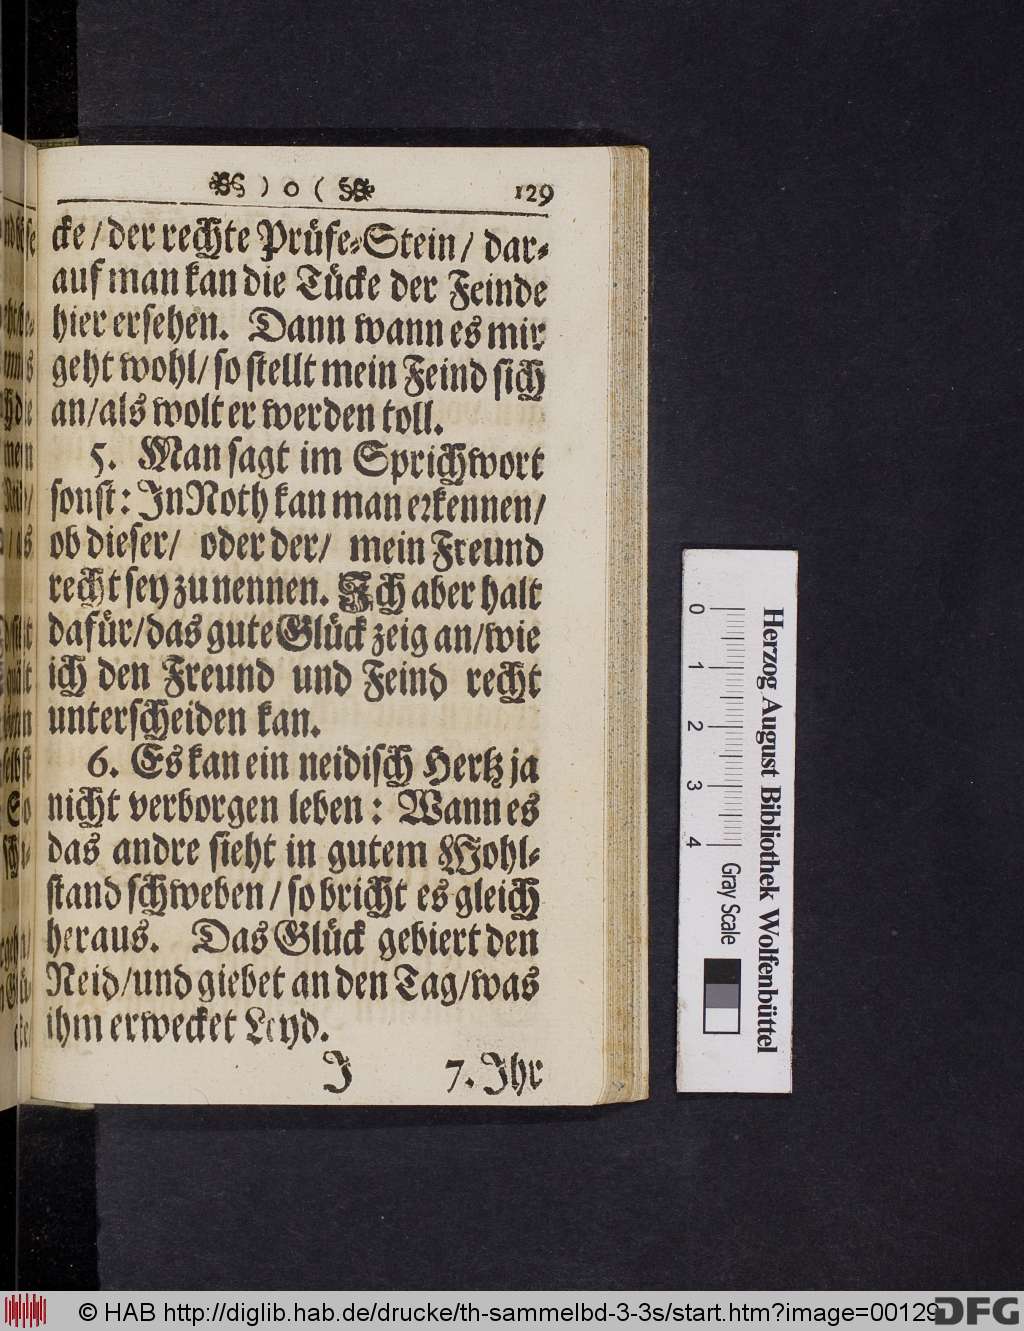 ) o ( 129
cke / der rechte Prüfe-Stein / dar-
auf man kan die Tücke der Feinde
hier ersehen. Dann wann es mir
geht wohl / so stellt mein Feind sich
an / als wolt er werden toll.
5. Man sagt im Sprichwort
sonst: In Noth kan man erkennen /
ob dieser / oder der / mein Freund
recht sey zu nennen. Ich aber halt
dafür / das gute Glück zeig an / wie
ich den Freund und Feind recht
unterscheiden kan.
6. Es kan ein neidisch Hertz ja
nicht verborgen leben: Wann es
das andre sieht in gutem Wohl-
stand schweben / so bricht es gleich
heraus. Das Glück gebiert den
Neid / und giebet an den Tag / was
ihm erwecket Leyd.
J 7. Ihr
Herzog August Bibliothek Wolfenbüttel
0 1 2 3 4 Gray Scale
© HAB http://diglib.hab.de/drucke/th-sammelbd-3-3s/start.htm?image=00129
DFG